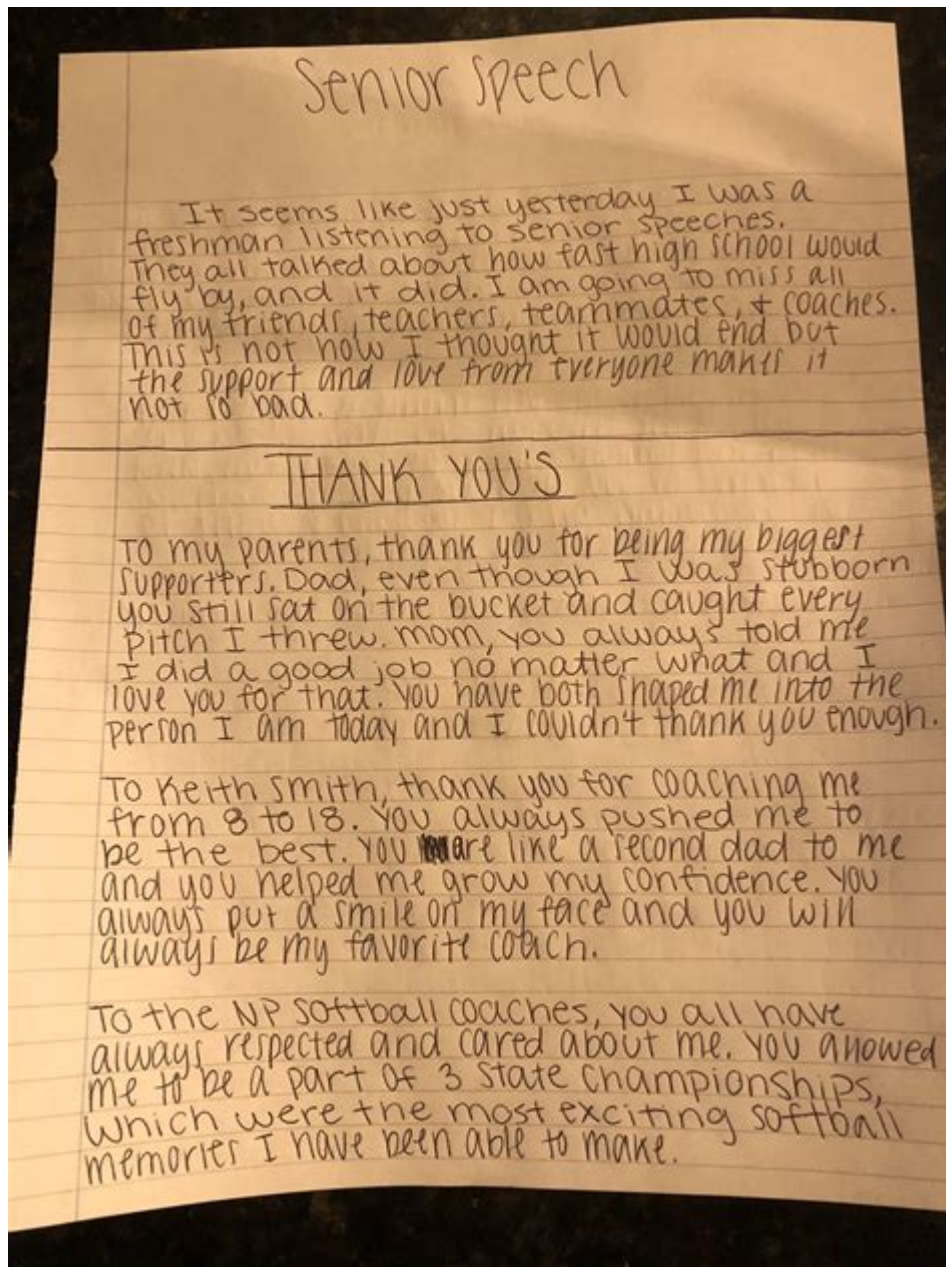 Senior Speech
It seems like just yesterday I was a
freshman listening to senior speeches.
They all talked about how fast high school would
fly by, and it did. I am going to miss all
of my friends, teachers, teammates, + coaches.
This is not how I thought it would end but
the support and love from everyone makes it
not so bad.
THANK YOU'S
To my parents, thank you for being my biggest
supporters. Dad, even though I was stubborn
you still sat on the bucket and caught every
pitch I threw. Mom, you always told me
I did a good job no matter what and I
love you for that. You have both shaped me into the
person I am today and I couldn't thank you enough.
To Keith Smith, thank you for coaching me
from 8 to 18. You always pushed me to
be the best. You are like a second dad to me
and you helped me grow my confidence. You
always put a smile on my face and you will
always be my favorite coach.
To the NP softball coaches, you all have
always respected and cared about me. You allowed
me to be a part of 3 State Championships,
which were the most exciting softball
memories I have been able to make.